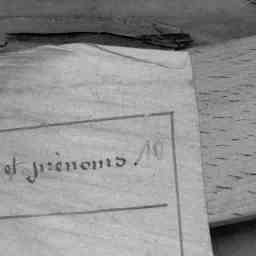 et prénoms. 10